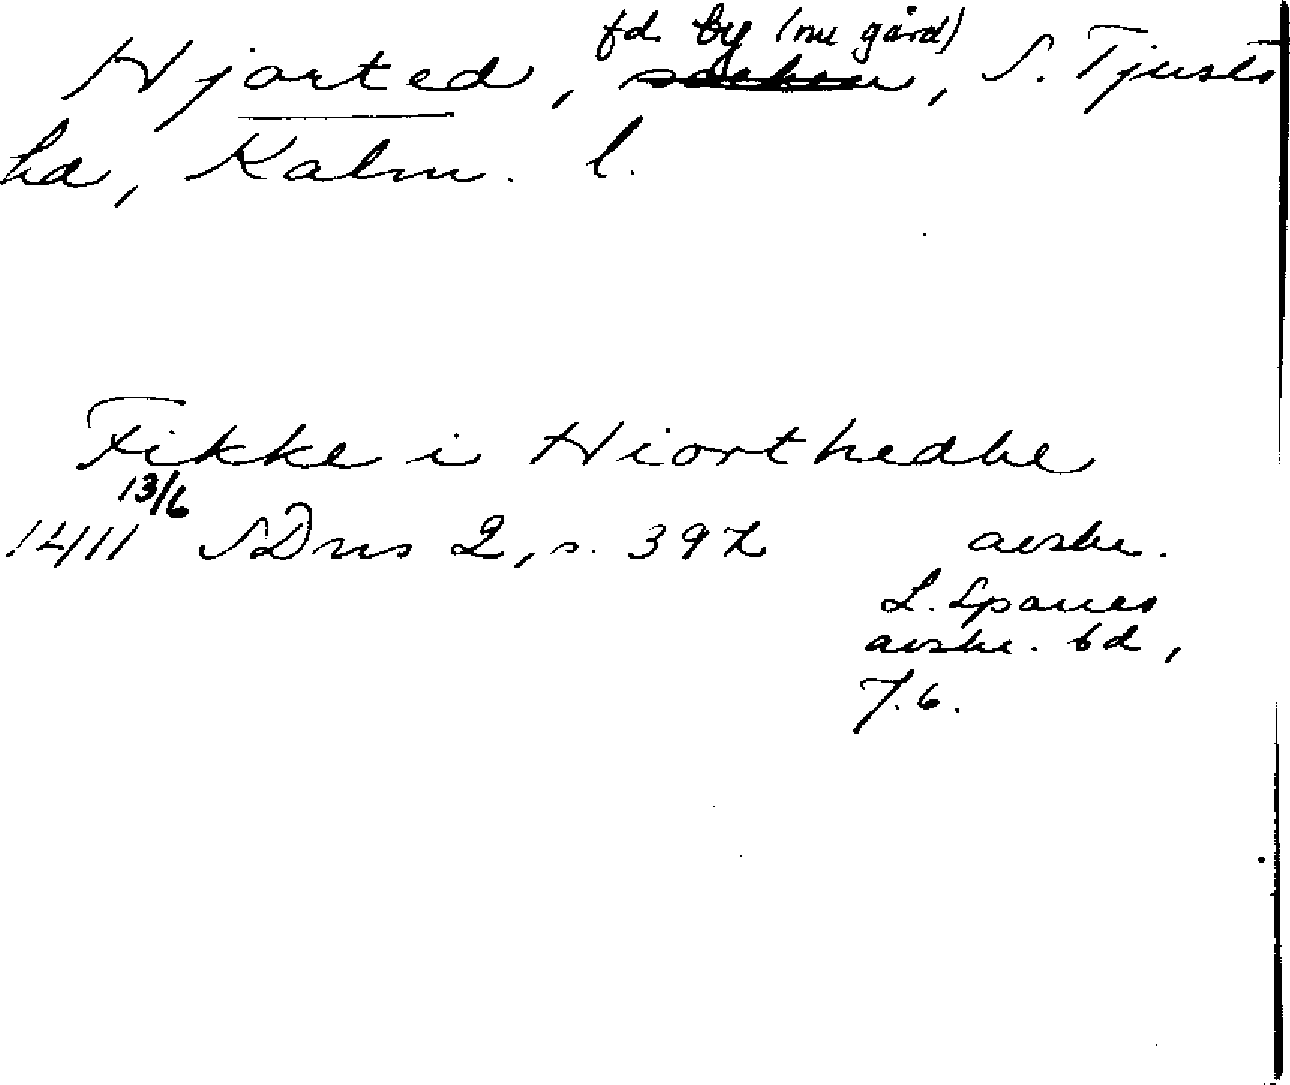 fd. by (nu gård)
Hjorted, socken, S. Tjusts
hd, Kalm. l.
Fikke i Hiorthedhe
13/6
1411 SDns 2, s. 397
avskr.
L. Sparres
avskr. bd,
7.6.